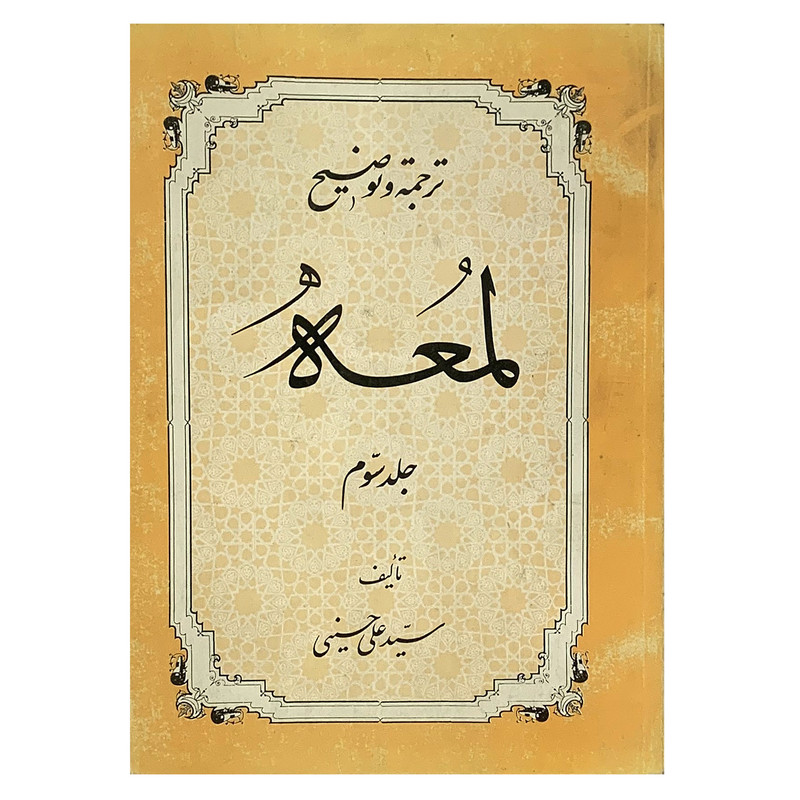 ترجمة و توضیح
لمُعه
جلد سوّم
تألیف
سیّد علی حسینی